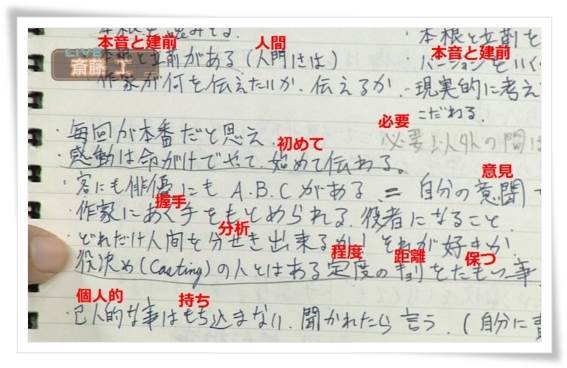 ・本根と立前を
本音と建前 人間 本音と建前
LIVE
斎藤 工
本根と立前がある (人門には)
・バージョンをいく
作家が何を伝えたいか、伝えるか
・現実的に考え
こだわる.
必要
必要以外の間は
・毎回が本番だと思え
初めて
・感動は命がけでやて、始めて伝ある。
意見
・客にも俳優にも A.B.Cがある = 自分の意聞
握手
・作家にあく手をもとめられる役者になること
分析
・どれだけ人間を分せき出来るか! それが好きか
程度 距離 保つ
役決め(Casting)の人とはある定度のキョリをたもつ事
個人的 持ち
・己人的な事はもち込まない. 聞かれたら言う. (自分に